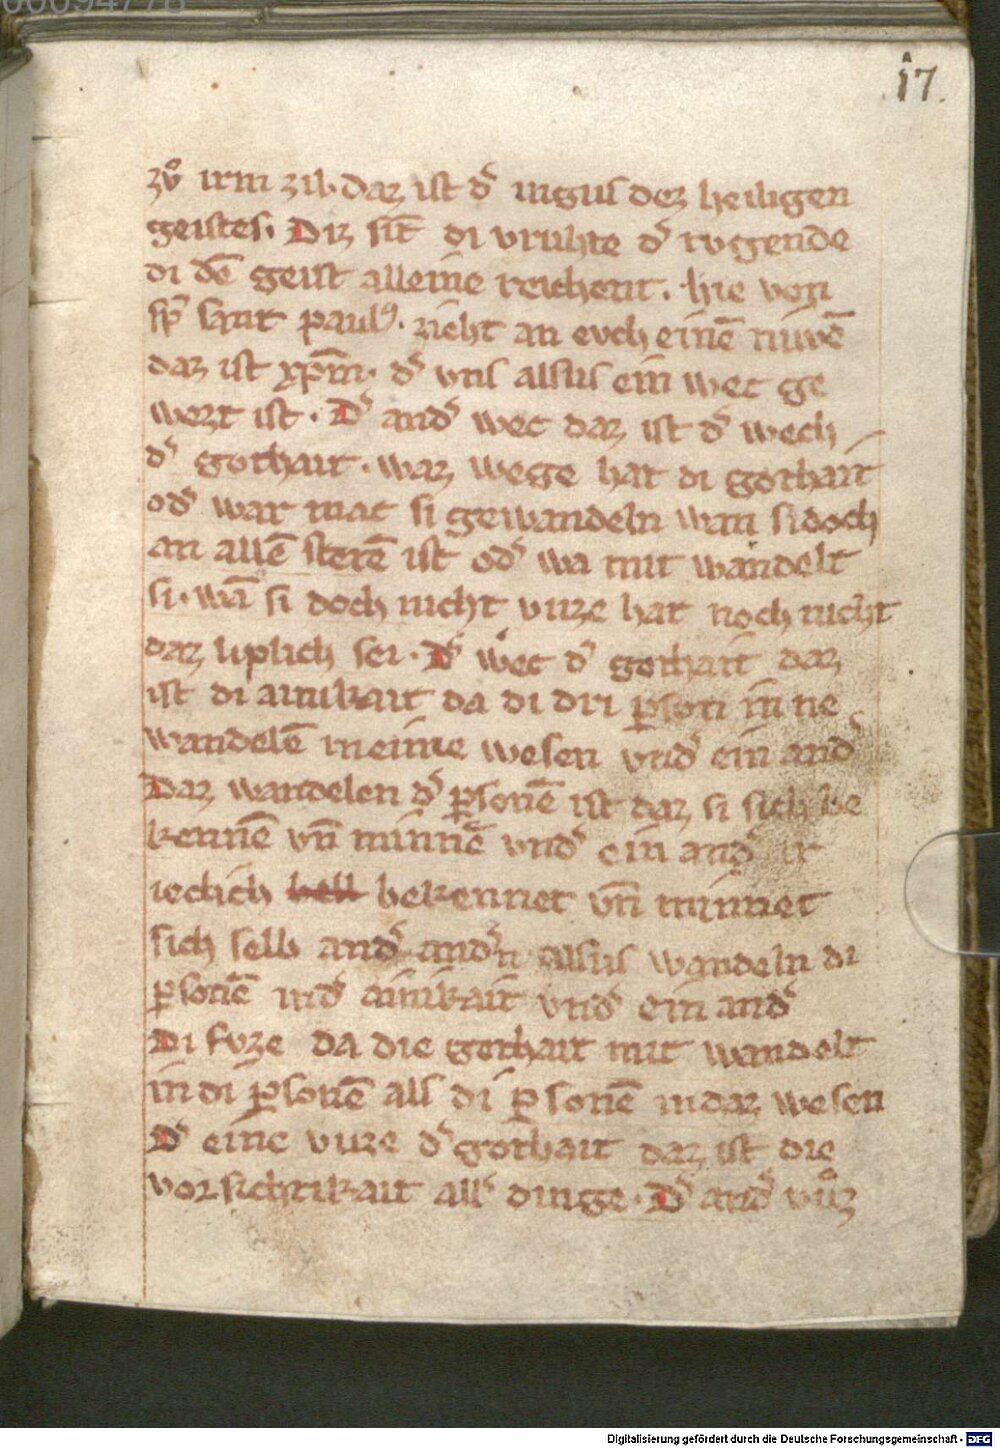 17.
zvͦ irm zil· daz ist dˢ ingus dez heiligen
geistes. Diz sīt di vruhte dˢ tvgende
di dē geist alleine reichent. hie von
sp̄ sant paulꝰ. zieht an evch einē niwē
daz ist xp̄m. dˢ vns alsus ein wec ge
wezt ist. Dˢ andˢ wec daz ist dˢ wech
dˢ gothait. waz wege hat di gothait
odˢ war mac si gewandeln wan si doch
an allē stetē ist odˢ wa mit wandelt
si. wā si doch nicht vuze hat noch nicht
daz liplich sei. Dˢ wec dˢ gothait daz
ist di ainikait da di dri ꝑson in ne
wandelē in eime wesen vndˢ ein andˢ
Daz wandelen dˢ ꝑsonē ist daz si sich be
kennē vn̄ minnē vndˢ ein andˢ ir
ieclich hell bekennet vn̄ minnet
sich selb andˢ andˢn alsus wandeln di
ꝑsonē in dˢ ainikait vndˢ ein andˢ
Di fvze da die gothait mit wandelt
in di ꝑsonē als di ꝑsonē in daz wesen
Dˢ eine vuze dˢ gothait daz ist die
vorsichtikait allˢ dinge. Dˢ andˢ vuͦz
Digitalisierung gefördert durch die Deutsche Forschungsgemeinschaft - DFG